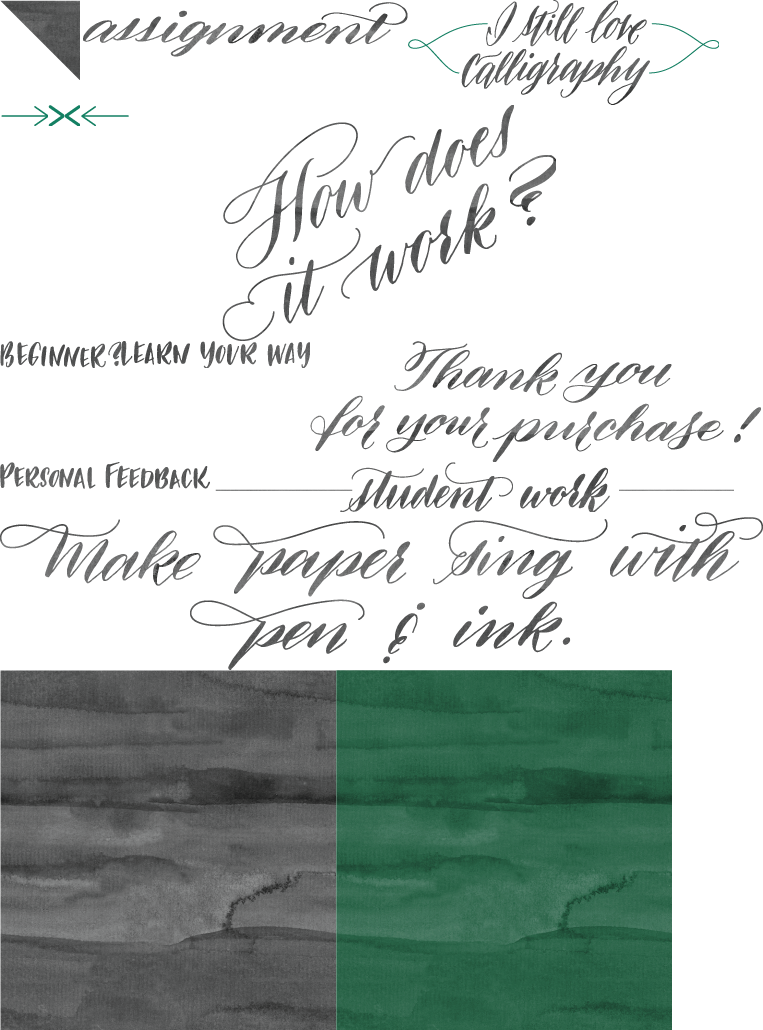 assignment
I still love
Calligraphy
How does
it work?
BEGINNER?
LEARN YOUR WAY
Thank you
for your purchase!
PERSONAL FEEDBACK
student work
Make paper sing with
pen & ink.